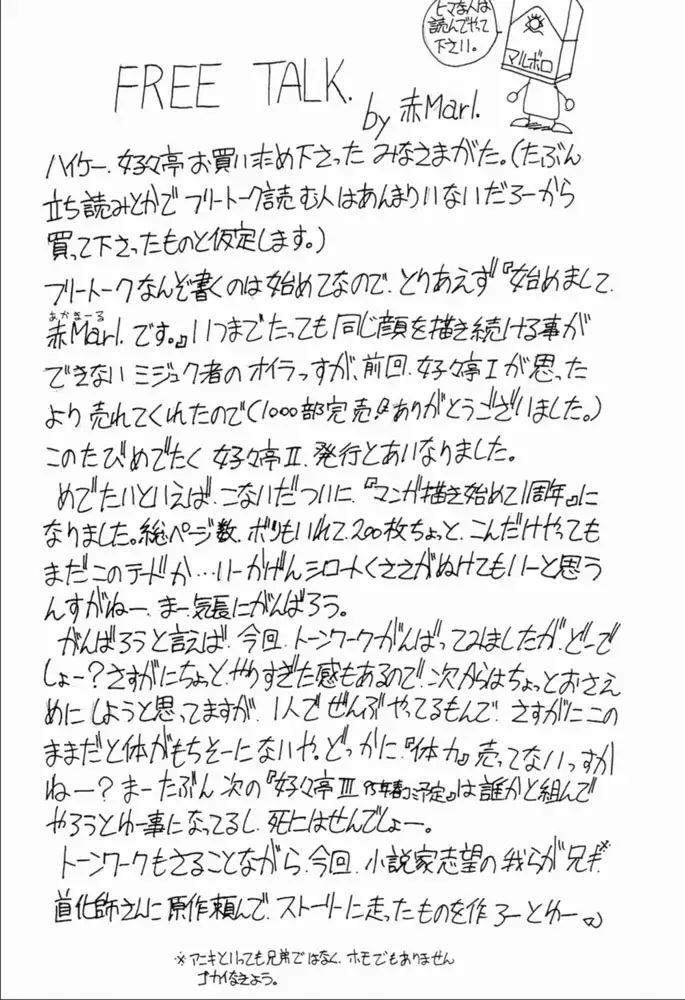 ヒマな人は
読んでやって
下さい。
マルボロ
FREE TALK.
by 赤Marl.
ハイケー、好々亭お買い求め下さったみなさまがた。(たぶん
立ち読みとかでフリートーク読む人はあんまりいないだろーから
買って下さったものと仮定します。)
フリートークなんぞ書くのは始めてなので、とりあえず『始めまして、
あかまーる
赤Marl.です。』いつまでたっても同じ顔を描き続ける事が
できないミジュク者のオイラっすが、前回、好々亭Iが思った
より売れてくれたので(1000部完売!!ありがとうございました。)
このたびめでたく好々亭II、発行とあいなりました。
めでたいといえば、こないだついに、『マンガ描き始めて1周年』に
なりました。総ページ数、ボツもいれて、200枚ちょっと、こんだけやっても
まだこのテードか…いーかげんシロートくささがぬけてもいーと思う
んすがねー、まー、気長にがんばろう。
がんばろうと言えば、今回、トーンワークがんばってみましたが、どーで
しょー?さすがにちょっとやりすぎた感もあるので、次からはちょっとおさえ
めにしようと思ってますが、1人でぜんぶやってるもんで、さすがにこの
ままだと体がもちそーにないや。どっかに『体力』売ってないっすか
ねー?まーたぶん次の『好々亭III 95年春予定』は誰かと組んで
やろうとゆー事になってるし、死にはせんでしょー。
トーンワークもさることながら、今回、小説家志望の我らが兄キ※
道化師さんに原作頼んで、ストーリーに走ったものを作ろーとゆー
※アニキといっても兄弟ではなく、ホモでもありません
ゴカイなきよう。